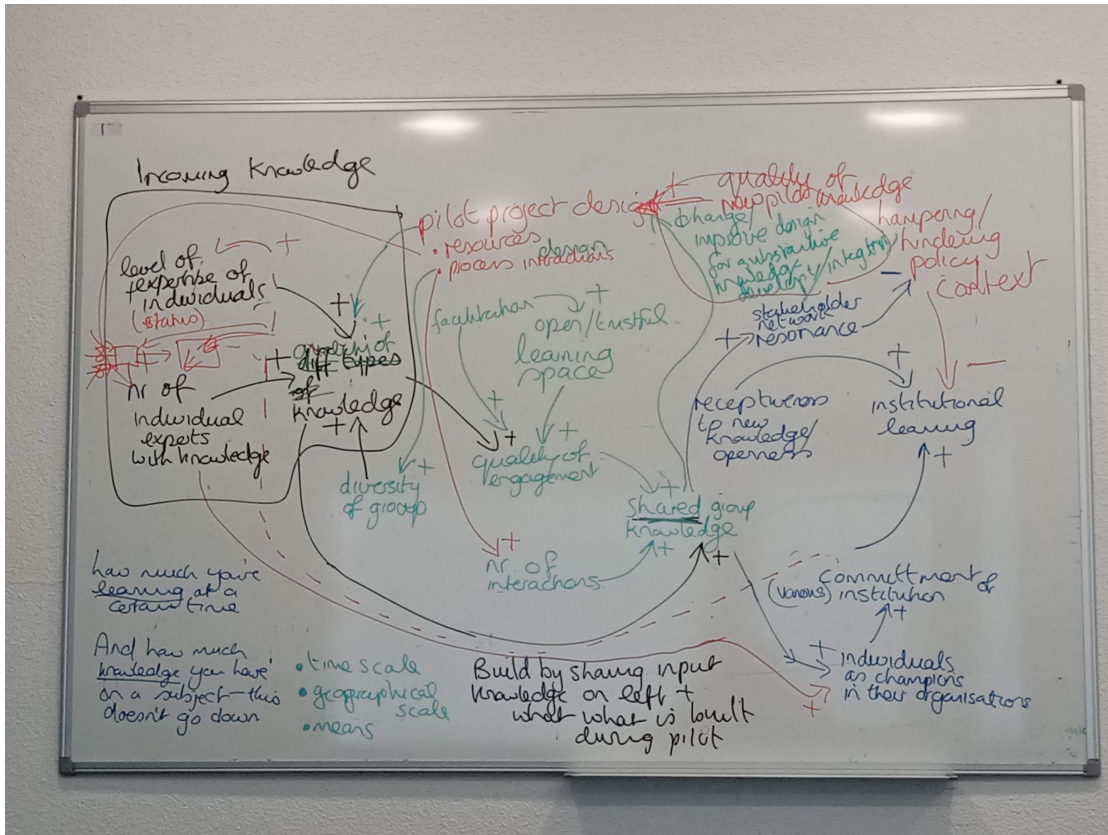 Incoming Knowledge
level of
expertise of
individuals
(status)
nr of
individual
experts
with knowledge
diff types
of
knowledge
diversity
of group
pilot project design
• resources
• process interactions
design
facilitation
open/trustful
learning
space
quality of
engagement
nr. of
interactions
Shared group
knowledge
quality of
new pilot knowledge
change/
improve design
for substantive
knowledge
develop/integration
hampering/
hindering
policy
context
stakeholder
network
resonance
receptiveness
to new
knowledge/
openness
institutional
learning
committment of
(various) institution
individuals
as champions
in their organisations
how much you're
learning at a
certain time
And how much
knowledge you have
on a subject - this
doesn't go down
• time scale
• geographical
scale
• means
Build by sharing input
knowledge on left +
what what is built
during pilot